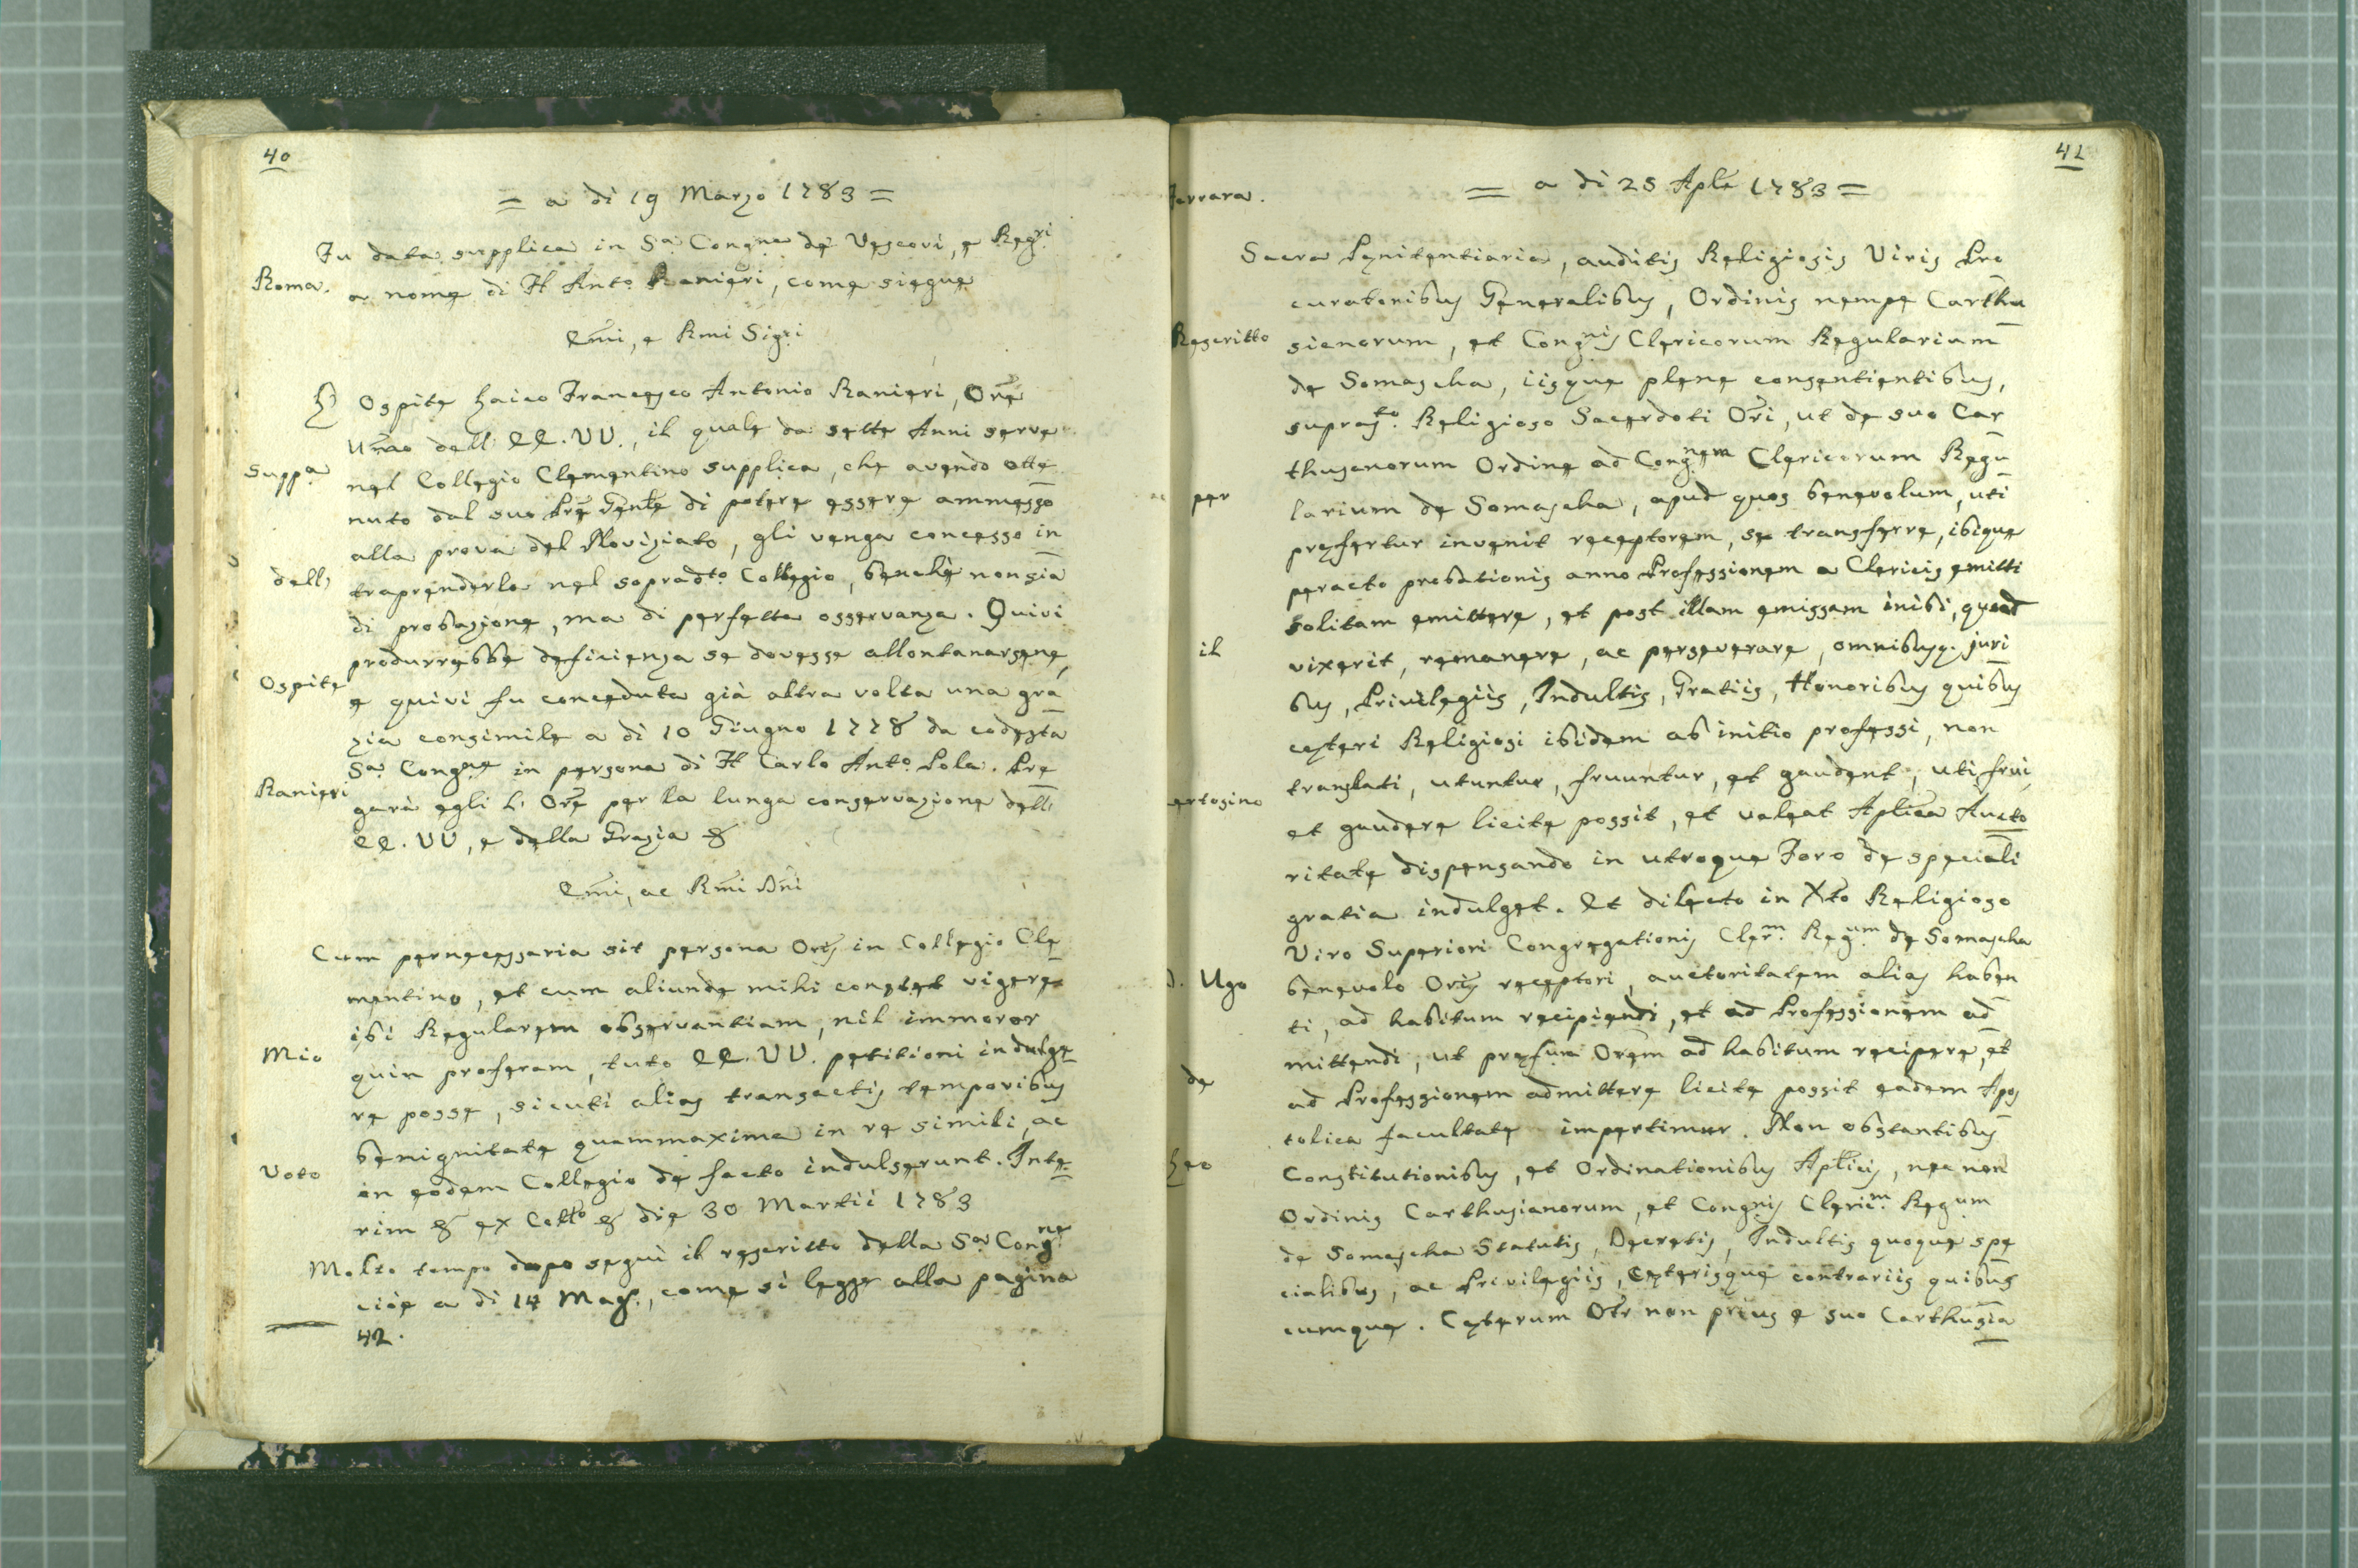 40
= a di 19 Marzo 1783 =
Fu data supplica in Sa. Congne de Vescovi, e Regri
Roma. a nome di Fl Anto. Ranieri, come siegue
Emi, e Rmi Sigri
Ospite Laico Francesco Antonio Ranieri, Ore
Umo dell' EE. VV., il quale da sette Anni serve
Suppa nel Collegio Clementino supplica, che avendo otte
nuto dal suo Pre Genle di potere essere ammesso
alla prova del Noviziato, gli venga concesso in
dell' traprenderlo nel sopradto. Collegio, benchè non sia
di probazione, ma di perfetta osservanza. Quivi
produrrebbe deficienza se dovesse allontanarsene,
Ospite e quivi fu conceduta già altra volta una gra
zia consimile a di 10 Giugno 1778 da codesta
Sa. Congne in persona di Fl Carlo Anto. Pola. Pre
Ranieri garà egli l' Ore per la lunga conservazione dell'
EE. VV, e della Grazia &
Emi, ac Rmi Dni
Cum pernecessaria sit persona Oris in Collegio Cle
mentino, et cum aliunde mihi constet vigere
ibi Regularem observantiam, nil immoror
Mio quin proferam, tuto EE. VV. petitioni indulge
re posse, sicuti alias transactis temporibus
benignitate quammaxima in re simili, ac
Voto in eodem Collegio de facto indulserunt. Inte
rim & ex Collo & die 30 Martii 1783
Molto tempo dopo seguì il rescritto della Sa. Congne
cioè a di 14 Mag., come si legge alla pagina
42.
41
= a di 25 Aple 1783 =
Ferrara.
Sacra Penitentiaria, auditis Religiosis Viris Pro
curatoribus Generalibus, Ordinis nempe Carthu
Rescritto sianorum, et Congnis Clericorum Regularium
de Somascha, iisque plene consentientibus,
supraso. Religioso Sacerdoti Ori, ut de suo Car
thusanorum Ordine ad Congnem Clericorum Regu
per larium de Somascha, apud quos benevolum, uti
prefertur invenit receptorem, se transferre, ibique
peracto probationis anno Professionem a Clericis emitti
solitam emittere, et post illam emissam inibi, quoad
il vixerit, remanere, ac perseverare, omnibusq. juri
bus, Privilegiis, Indultis, Gratiis, Honoribus quibus
ceteri Religiosi ibidem ab initio professi, non
translati, utuntur, fruuntur, et gaudent, uti frui,
ertosino et gaudere licite possit, et valeat Aplica Aucto
ritate dispensando in utroque Foro de speciali
gratia indulget. Et dilecto in Xto Religioso
Viro Superiori Congregationis Clerm. Regum de Somascha
D. Ugo benevolo Oris receptori, auctoritatem alias haben
ti, ad habitum recipiendi, et ad Professionem ad
mittendi, ut prefum Orem ad habitum recipere, et
de ad Professionem admittere licite possit eadem Apos
tolica facultate impertimur. Non obstantibus
Leo Constitutionibus, et Ordinationibus Aplicis, nec non
Ordinis Carthusianorum, et Congnis Clericm. Regum
de Somascha Statutis, Decretis, Indultis quoque spe
cialibus, ac Privilegiis, ceterisque contrariis quibus
cumque. Ceterum Otr non prius e suo Carthusia